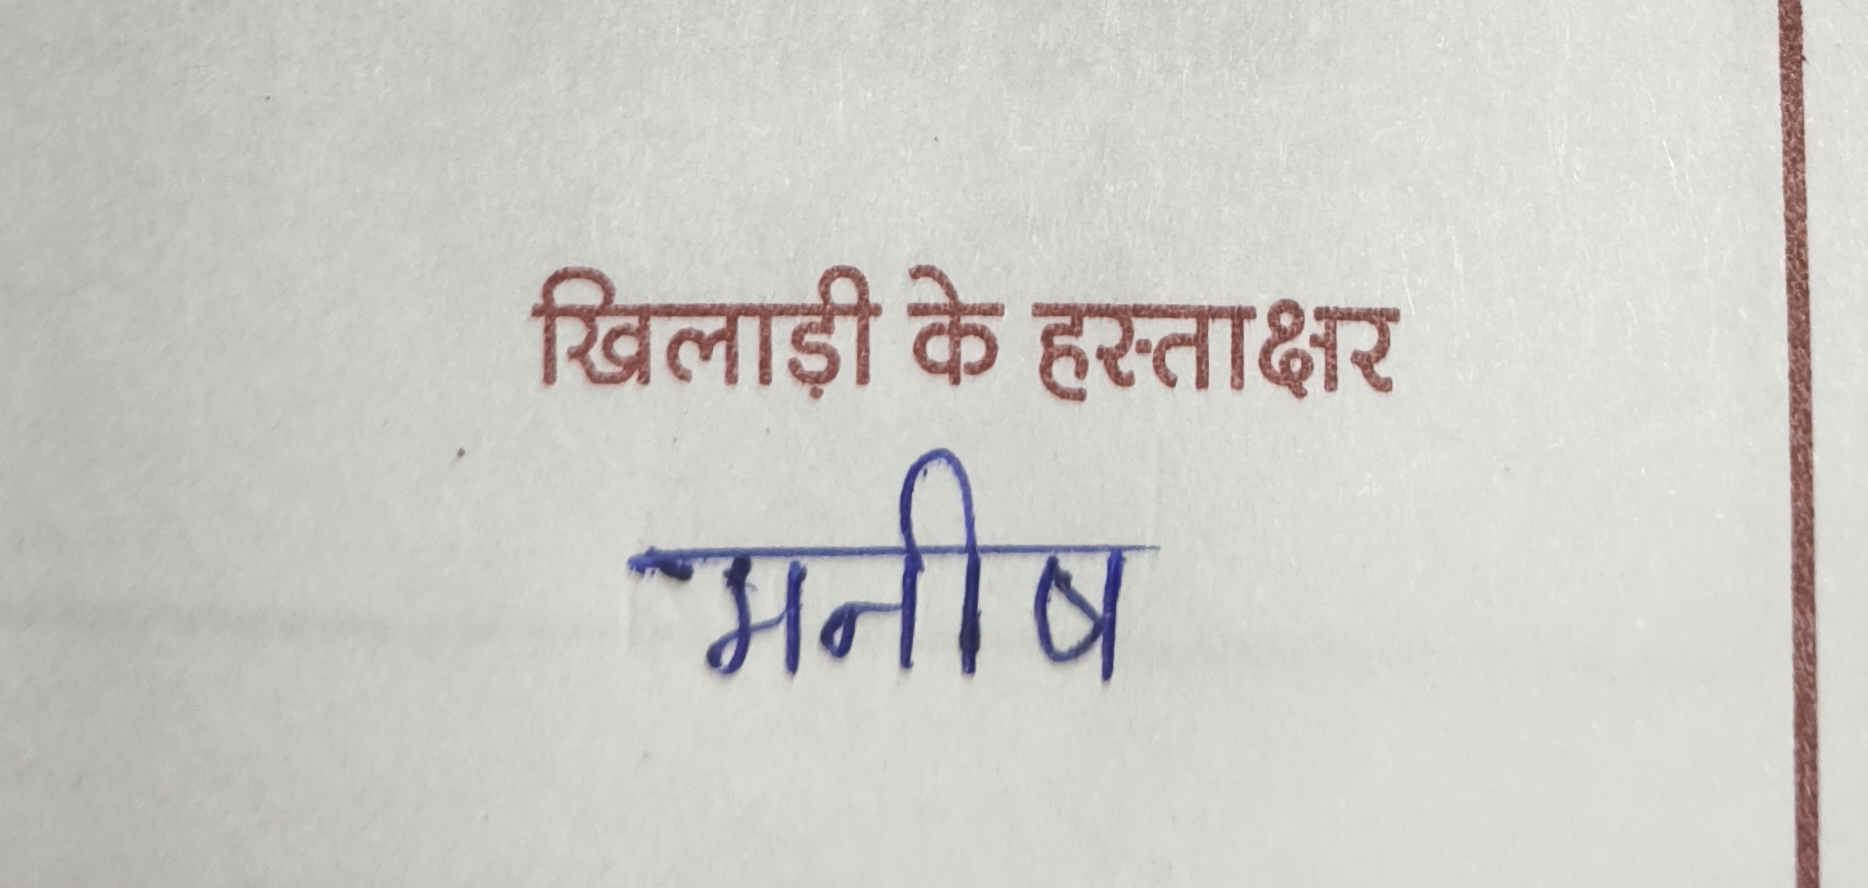 खिलाड़ी के हस्ताक्षर
मनीष